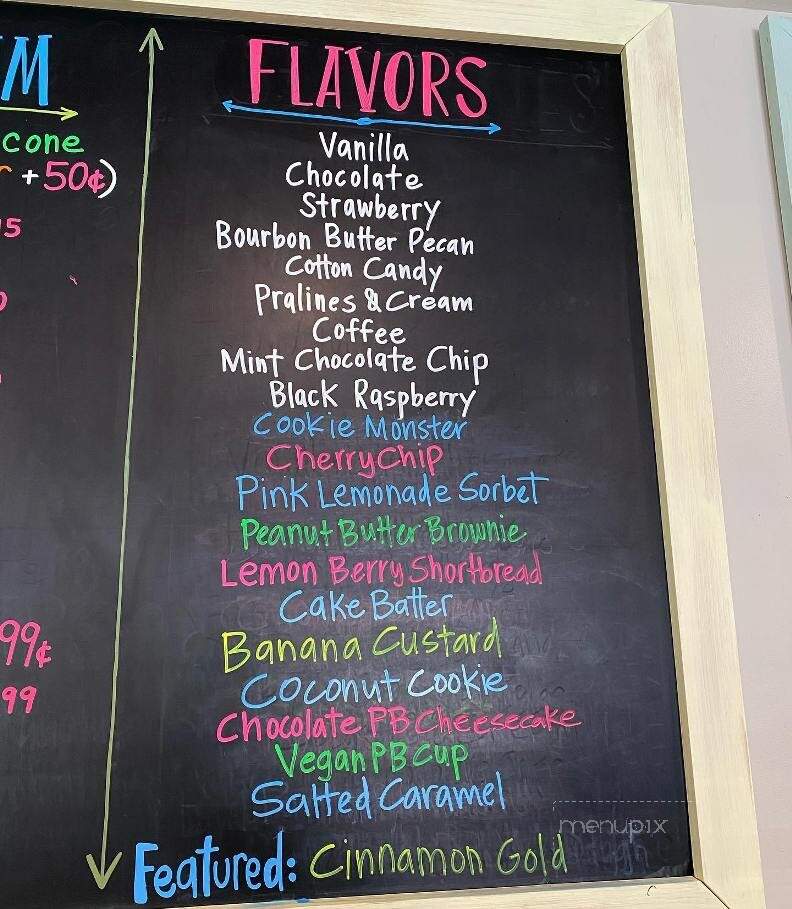 M
cone
+50¢)
15
99¢
99
FLAVORS
Vanilla
Chocolate
Strawberry
Bourbon Butter Pecan
Cotton Candy
Pralines & Cream
Coffee
Mint Chocolate Chip
Black Raspberry
Cookie Monster
Cherry Chip
Pink Lemonade Sorbet
Peanut Butter Brownie
Lemon Berry Shortbread
Cake Batter
Banana Custard
Coconut Cookie
Chocolate PB Cheesecake
Vegan PB Cup
Salted Caramel
Featured: Cinnamon Gold
menupix